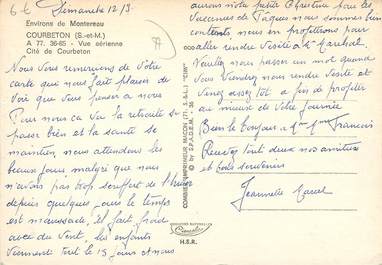 6-£ Dimanche 12/3.
Environs de Montereau
COURBETON (S.-et-M.)
A 77. 36-65 - Vue aérienne
Cité de Courbeton
77
Nous vous remercions de votre
carte qui nous fait plaisir de
Voir que vous pensez a nous
Pour nous ca va la retraite se
passer bien et la sante se
maintien nous attendons les
beaux jours, malgré que nous
n'avons pas trop souffert de l'hiver
depuis quelques jours le temps
est maussade, il fait froid
avec du vent, les enfants
viennent tout le 15 jours et nous
COMBIER IMPRIMEUR MACON (71. S.-&-L.) "CIM"
© by S.P.A.D.E.M. 36
aurons notre petite Christine pour les
Vacances de Paques nous sommes bien
contents, nous en profitons pour
aller rendre visite a
Veuillez nous passer un mot quand
Vous Viendrez nous rendre visite et
Venez assez tot a fin de profiter
au mieux de votre journée
Bien le bonjour a Mr Mme Francois
Recevez tout deux nos amitiées
et bons souvenirs
Jeannette Marcel
COULEURS NATURELLES
Cimcolor
H.S.R.